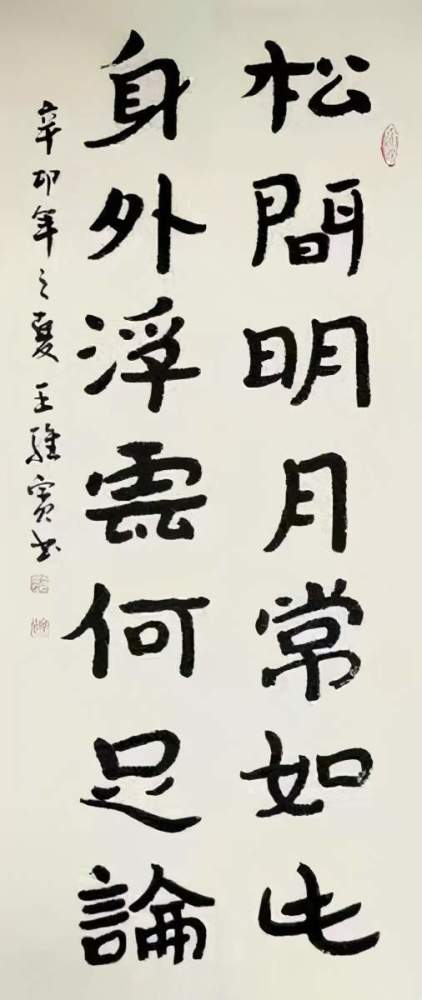 松間明月常如此
身外浮雲何足論
辛卯年之夏王維寶书